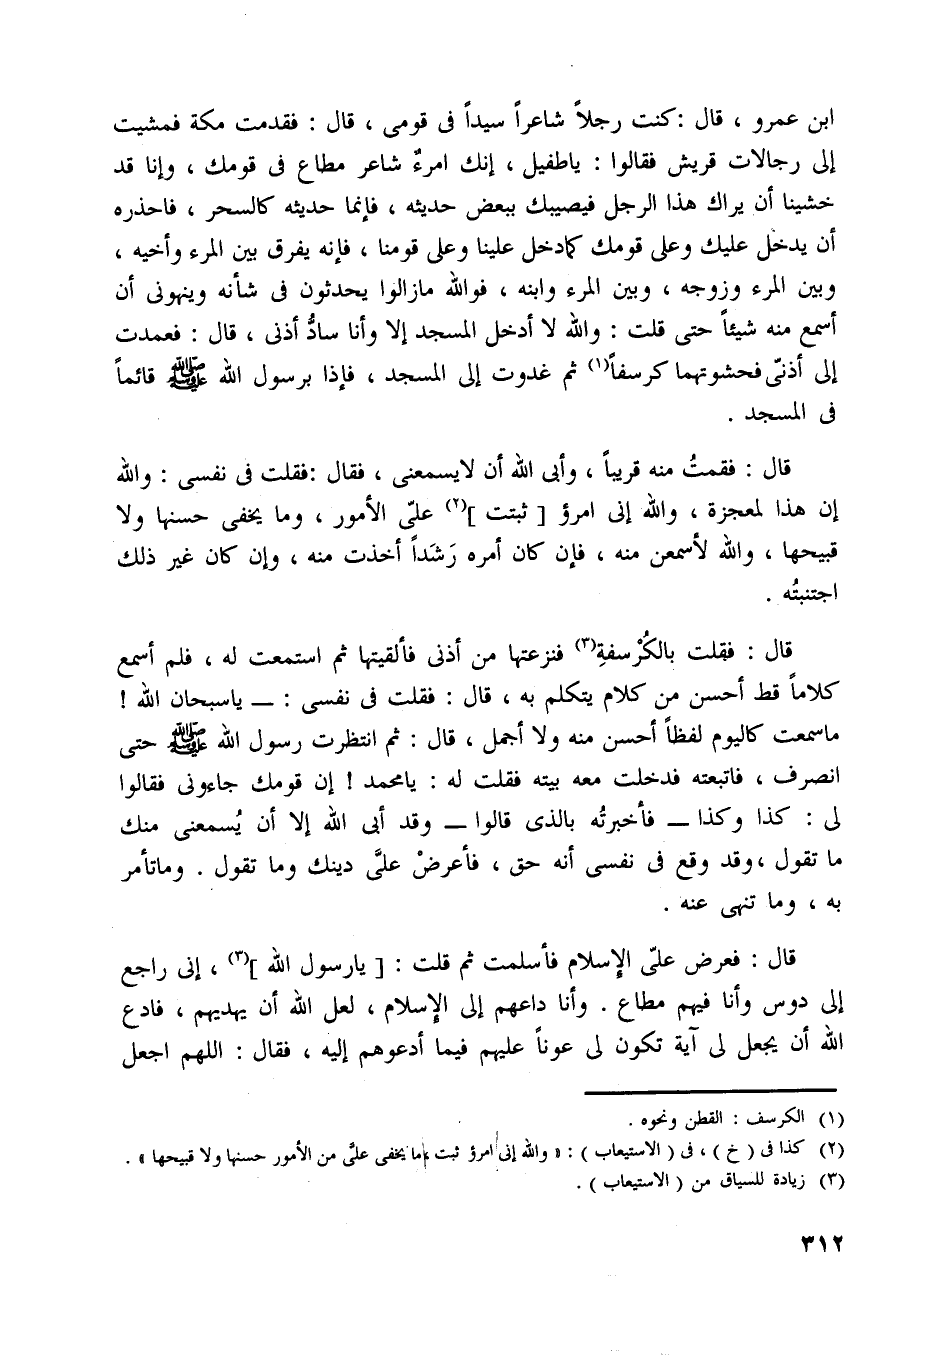 ابن عمرو ، قال :كنت رجلاً شاعراً سيداً فى قومى ، قال : فقدمت مكة فمشيت
إلى رجالات قريش فقالوا : ياطفيل ، إنك امرءٌ شاعر مطاع فى قومك ، وإنا قد
خشينا أن يراك هذا الرجل فيصيبك ببعض حديثه ، فإنما حديثه كالسحر ، فاحذره
أن يدخل عليك وعلى قومك كمادخل علينا وعلى قومنا ، فإنه يفرق بين المرء وأخيه ،
وبين المرء وزوجه ، وبين المرء وابنه ، فوالله مازالوا يحدثون فى شأنه وينهونى أن
أسمع منه شيئاً حتى قلت : والله لا أدخل المسجد إلا وأنا سادُّ أذنى ، قال : فعمدت
إلى أذنىّ فحشوتهما كرسفاً(١) ثم غدوت إلى المسجد ، فإذا برسول الله ﷺ قائماً
فى المسجد .
قال : فقمتُ منه قريباً ، وأبى الله أن لايسمعنى ، فقال :فقلت فى نفسى : والله
إن هذا لمعجزة ، والله إنى امرؤ [ ثبتت ](٢) علىّ الأمور ، وما يخفى حسنها ولا
قبيحها ، والله لأسمعن منه ، فإن كان أمره رَشَداً أخذت منه ، وإن كان غير ذلك
اجتنبتُه .
قال : فقلت بالكُرْسفةِ(٣) فنزعتها من أذنى فألقيتها ثم استمعت له ، فلم أسمع
كلاماً قط أحسن من كلام يتكلم به ، قال : فقلت فى نفسى : ــ ياسبحان الله !
ماسمعت كاليوم لفظاً أحسن منه ولا أجمل ، قال : ثم انتظرت رسول الله ﷺ حتى
انصرف ، فاتبعته فدخلت معه بيته فقلت له : يامحمد ! إن قومك جاءونى فقالوا
لى : كذا وكذا ــ فأخبرتُه بالذى قالوا ــ وقد أبى الله إلا أن يُسمعنى منك
ما تقول ،وقد وقع فى نفسى أنه حق ، فأعرضْ علىَّ دينك وما تقول . وماتأمر
به ، وما تنهى عنه .
قال : فعرض علىّ الإسلام فأسلمت ثم قلت : [ يارسول الله ](٣) ، إنى راجع
إلى دوس وأنا فيهم مطاع . وأنا داعهم إلى الإسلام ، لعل الله أن يهديهم ، فادع
الله أن يجعل لى آية تكون لى عوناً عليهم فيما أدعوهم إليه ، فقال : اللهم اجعل
(١) الكرسف : القطن ونحوه .
(٢) كذا فى ( خ ) ، فى ( الاستيعاب ) : « والله إنى امرؤ ثبت ، ما يخفى علىَّ من الأمور حسنها ولا قبيحها » .
(٣) زيادة للسياق من ( الاستيعاب ) .
٣١٢